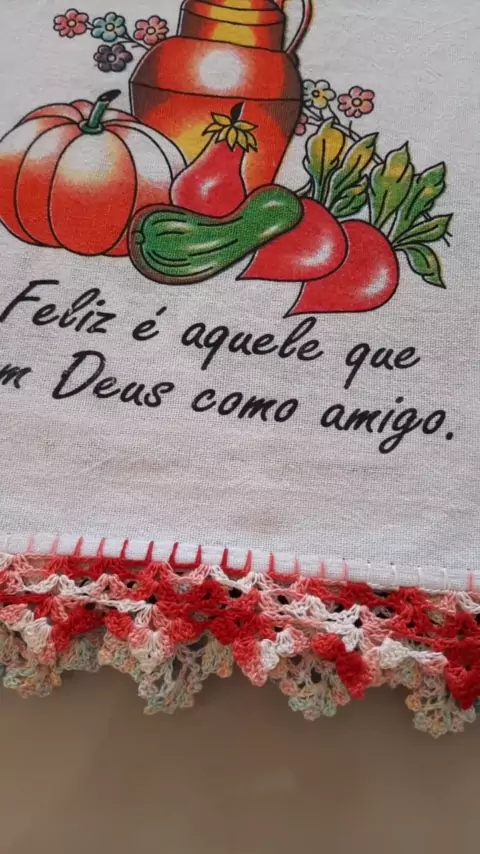 Feliz é aquele que
m Deus como amigo.